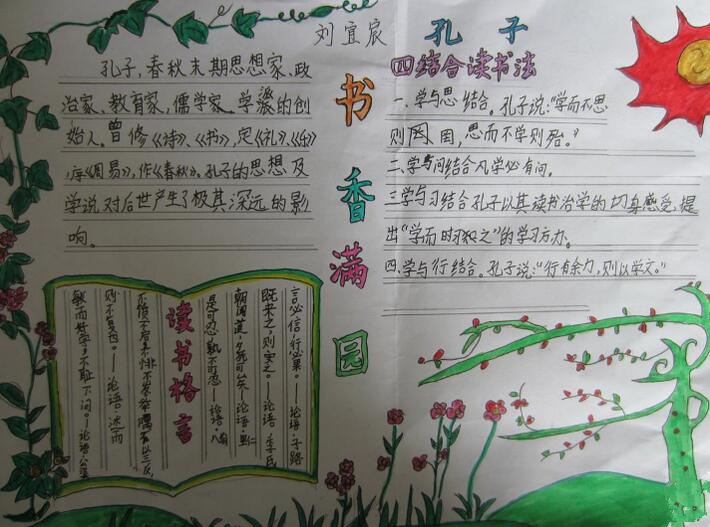 刘宜宸
孔子
书香满园
孔子，春秋末期思想家、政
治家、教育家，儒学家。学派的创
始人。曾修《诗》、《书》，定《礼》、《乐》
，序《周易》，作《春秋》。孔子的思想及
学说对后世产生了极其深远的影
响。
四结合读书法
一.学与思结合。孔子说："学而不思
则罔，思而不学则殆。"
二.学与问结合凡学必有问。
三学与习结合孔子以其读书治学的切身感受，提
出"学而时习之"的学习方力。
四.学与行结合。孔子说："行有余力，则以学文。"
读书格言
言必信，行必果。——论语·子路
既来之，则安之。——论语·季氏
朝闻道，夕死可矣——论语·里仁
是可忍，孰不可忍——论语·八佾
不愤不启，不悱不发，举隅不以三反
则不复也。——论语·述而
敏而好学，不耻下问。——论语·公